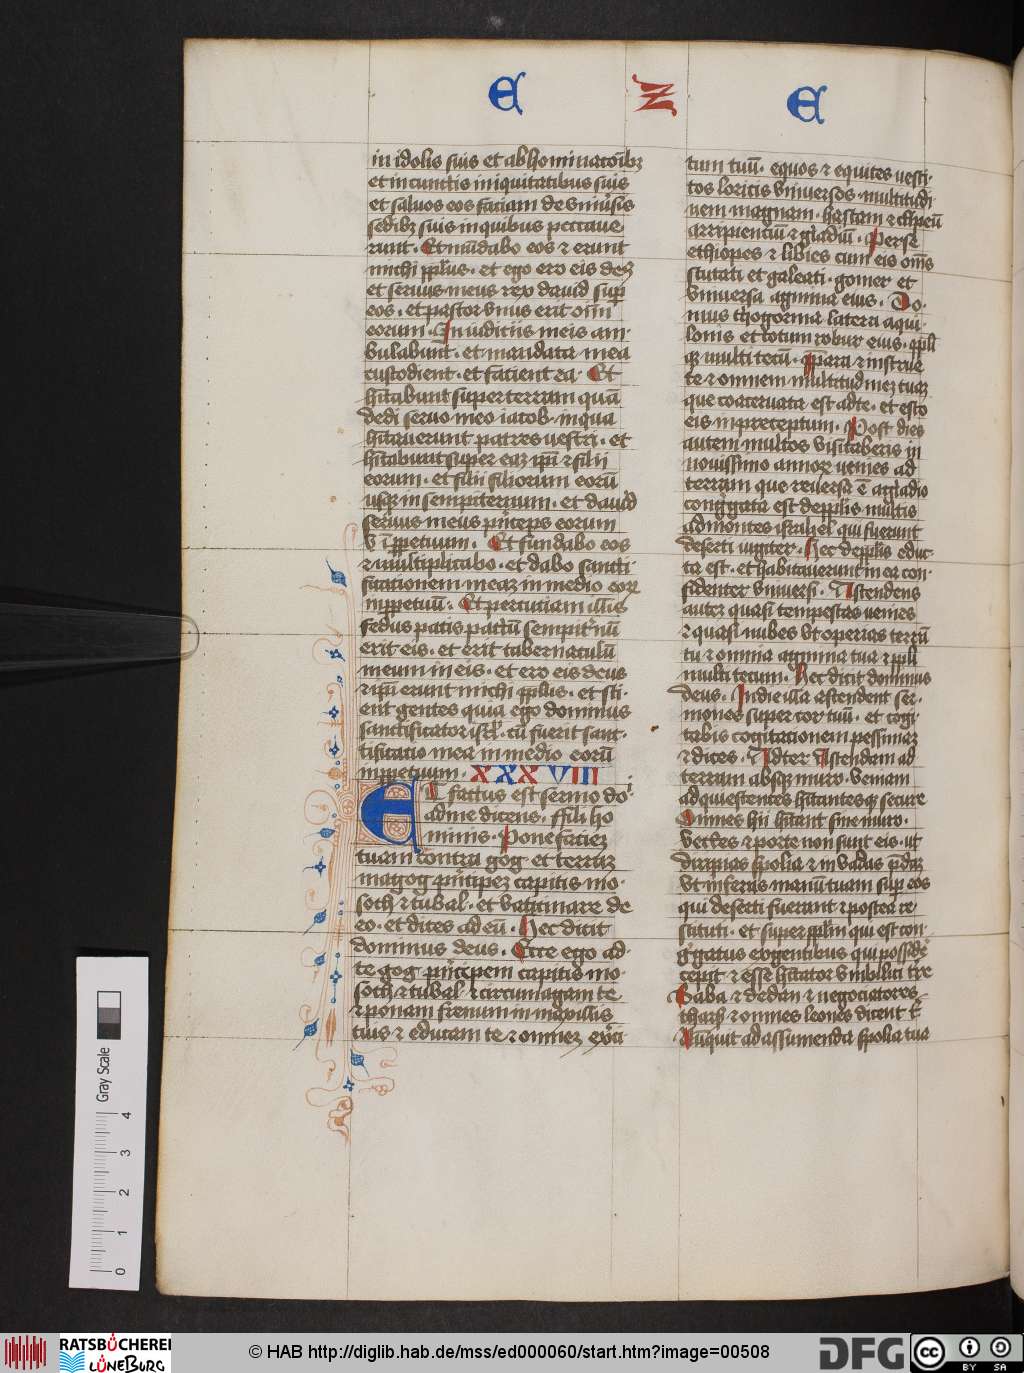 E Z E
in idolis suis et abhominatōibꝫ
et in cunctis iniquitatibus suis
et saluos eos faciam de vniūsis
sedibꝫ suis in quibus peccaue
runt. Et mūdabo eos ⁊ erunt
michi ppl̄us. et ego ero eis deꝰ
et seruus meus rex dauid sup̄
eos. et pastor vnus erit om̄
eorum. In iudiciis meis am-
bulabunt. et mandata mea
custodient. et facient ea. Et
hītabunt super terram quā
dedi seruo meo iacob. in qua
hītauerunt patres vestri. et
hītabunt super eaꝫ ip̄i ⁊ filii
eorum. et filii filiorum eorū
usqꝫ in sempiternum. et dauid
seruus meus p̄nceps eorum
ī ppetuum. Et fundabo eos
⁊ multiplicabo. et dabo sancti
ficationem meaꝫ in medio eoꝝ
inppetuū. Et percutiam illis
fedus pacis pactū sempit̄nū
erit eis. et erit tabernaculū
meum in eis. et ero eis deus
⁊ ip̄i erunt michi ppl̄us. et sci-
ent gentes quia ego dominus
sanctificator isrl̄. cū fuerit sanc-
tificatio mea in medio eorū
inppetuum. XXXVIII
Et factus est sermo do-
ad me dicens. ffili ho
minis. Pone facieꝫ
tuam contra gog et terraꝫ
magog p̄ncipeꝫ capitis mo-
soch ⁊ tubal. et vaticinare de
eo. et dices ad eū. Hec dicit
dominus deus. Ecce ego ad-
te gog p̄ncipem capitis mo-
soch ⁊ tubal ⁊ circumagam te
⁊ ponam frenum in maxillis
tuis ⁊ educam te ⁊ omneꝫ ex̄ci
tum tuū. equos ⁊ equites uesti-
tos loricis vniuersos. multitudi
nem magnam. hastam ⁊ clipeū
arripientiū ⁊ gladiū. Perse
ethiopes ⁊ libies cum eis om̄s
scutati et galeati. gomer et
vniuersa agmina eius. Do-
mus thogorma latera aqui-
lonis et totum robur eius. ppl̄i
qꝫ multi tecū. Ppara ⁊ instrue
te ⁊ omnem multitudineꝫ tuaꝫ
que coaceruata est ad te. et esto
eis in preceptum. Post dies
autem multos visitaberis in
nouissimo annoꝝ uenies ad
terram que reuersa ē a gladio
congregata est de ppl̄is multis
ad montes israhel qui fuerunt
deserti iugiter. Hec de ppl̄is educ-
ta est. et habitauerunt in ea con-
fidenter vniuersi. Ascendens
autē quasi tempestas uenies
⁊ quasi nubes vt operias terrā
tu ⁊ omnia agmina tua ⁊ ppl̄i
multi tecum. Hec dicit dominus
deus. In die illa ascendent ser-
mones super cor tuū. et cogi-
tabis cogitationem pessimaꝫ
⁊ dices. Ascendam ad
terram absqꝫ muro. Veniam
ad quiescentes hitantesqꝫ secure
Omnes hii hitant sine muro.
vectes ⁊ porte non sunt eis. ut
diripias spolia ⁊ inuadas p̄daꝫ
vt inferas manū tuam sup̄ eos
qui deserti fuerant ⁊ postea re
stituti. et super ppl̄m qui est con-
g̅gatus ex gentibus qui possid̄e
cepit ⁊ esse hitator vmbilici t̄re
Saba ⁊ dedan ⁊ negociatores
tharsis ⁊ omnes leones dicent t̄
Nūquit ad assumenda spolia tua
Gray Scale
0 1 2 3 4
RATSBÜCHEREI
LÜNEBURG
© HAB http://diglib.hab.de/mss/ed000060/start.htm?image=00508
DFG
cc BY SA